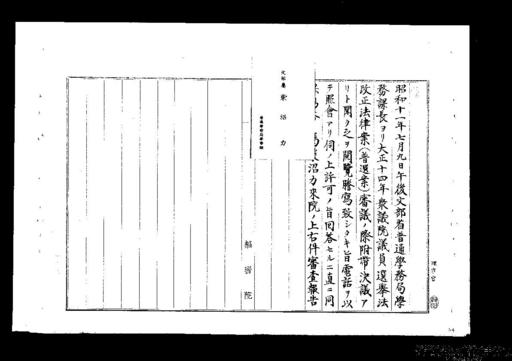 昭和十一年七月九日午後文部省普通學務局學
務課長ヨリ大正十四年衆議院議員選擧法
改正法律案(普選案)審議ノ際附帶決議ア
リト聞ク之ヲ閲覽謄寫致シタキ旨電話ヲ以
テ照會アリ伺ノ上許可ノ旨回答セルニ直ニ同
沼力來院ノ上右件審査報告
文部屬
沼力
樞密院